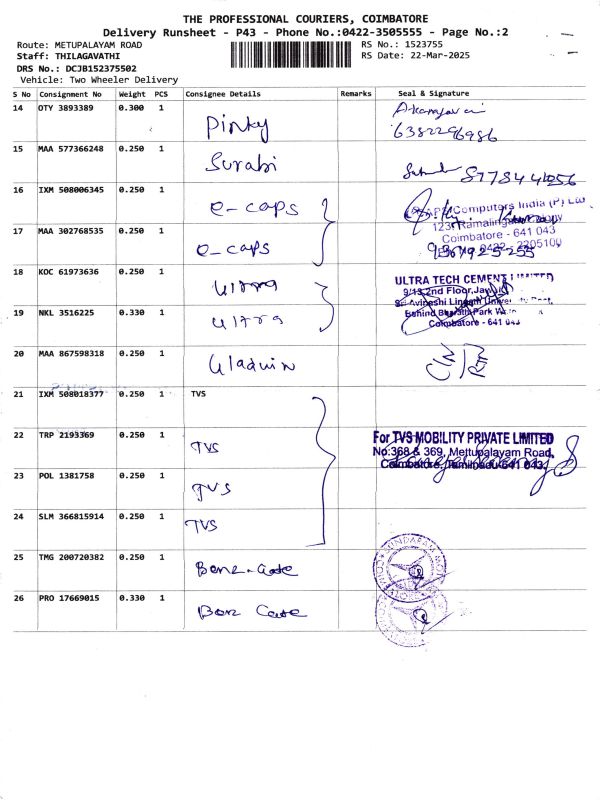 THE PROFESSIONAL COURIERS, COIMBATORE
Delivery Runsheet - P43 - Phone No.:0422-3505555 - Page No.:2
Route: METUPALAYAM ROAD RS No.: 1523755
Staff: THILAGAVATHI RS Date: 22-Mar-2025
DRS No.: DCJB152375502
Vehicle: Two Wheeler Delivery
S No Consignment No Weight PCS Consignee Details Remarks Seal & Signature
14 OTY 3893389 0.300 1 Pinky
6382296986
15 MAA 577366248 0.250 1 Surabi
16 IXM 508006345 0.250 1 e-caps
Computers India (P) Ltd
17 MAA 302768535 0.250 1 e-caps
Coimbatore - 641 043
18 KOC 61973636 0.250 1 Ultra
ULTRA TECH CEMENT LIMITED
9/13 2nd Floor,
19 NKL 3516225 0.330 1 Ultra
Behind Bharathi Park
Coimbatore - 641 043
20 MAA 867598318 0.250 1
21 IXM 508018377 0.250 1 TVS
22 TRP 2193369 0.250 1 TVS
For TVS MOBILITY PRIVATE LIMITED
No:368 & 369, Mettupalayam Road,
Coimbatore, Tamilnadu-641 043.
23 POL 1381758 0.250 1 TVS
24 SLM 366815914 0.250 1 TVS
25 TMG 200720382 0.250 1
SUNDARAM
26 PRO 17669015 0.330 1